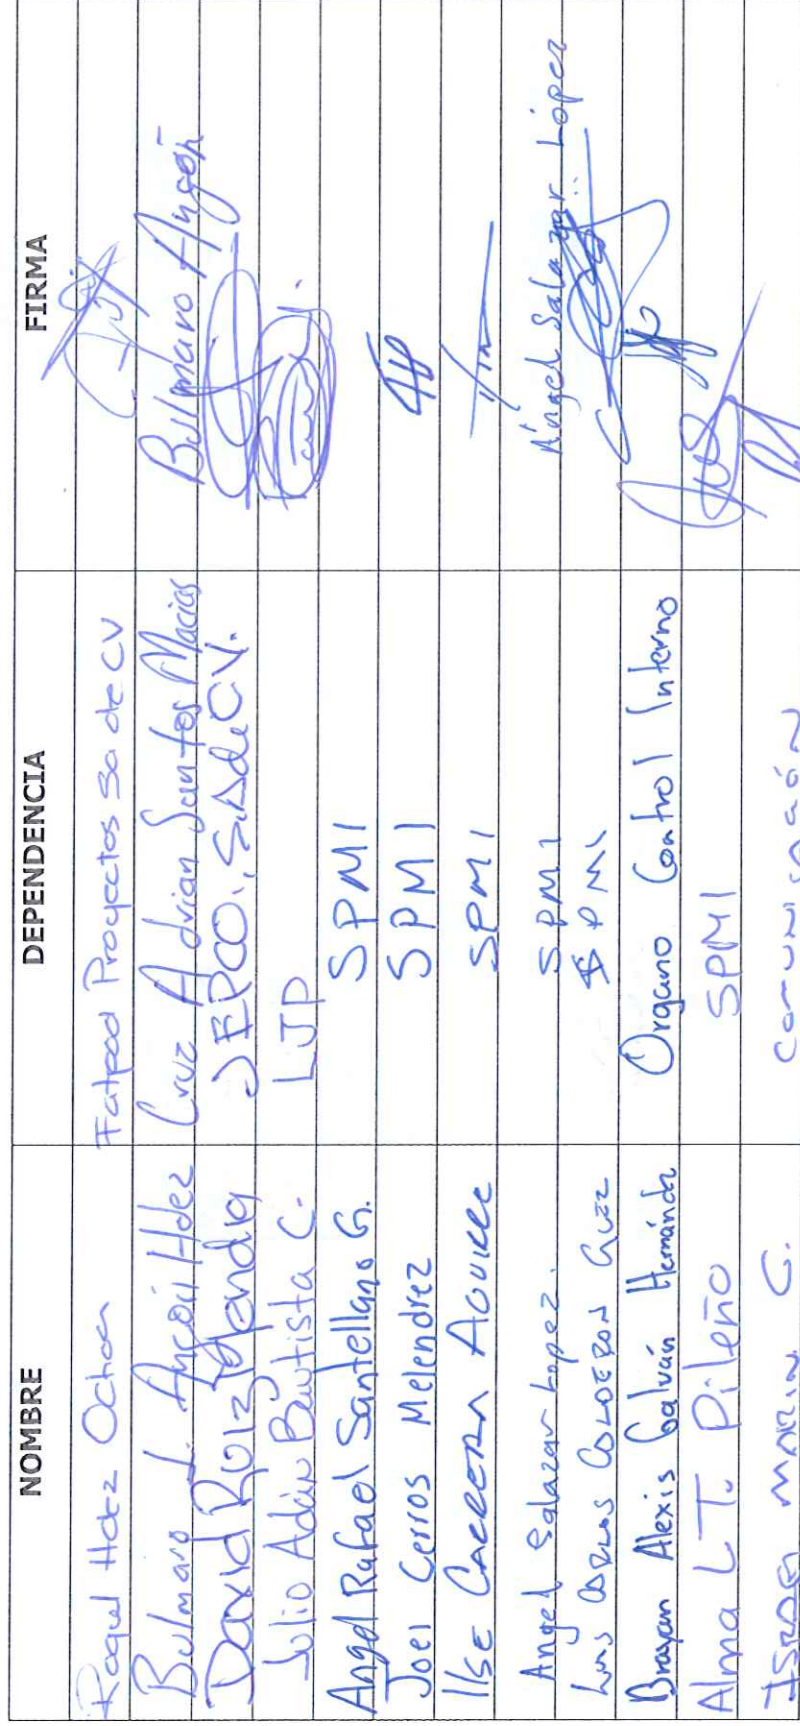 NOMBRE DEPENDENCIA FIRMA
Raquel Hdez Ochoa Fatpod Proyectos Sa de CV
Bulmaro L. Angón Hdez Cruz Adrian Santos Macias Bulmaro Angón
David Ruiz JEPCO., S.A de C.V.
Julio Adán Bautista C. LJP
Angel Rafael Santellano G. SPMI
Joel Cerros Melendrez SPMI
Ilse CARRERA AGUIRRE SPMI
Angel Salazar Lopez. SPMI Ángel Salazar López
Luis CARLOS CALDERON SPMI
Brayan Alexis Galván Hernández Organo Control Interno
Alma L T. Pileño SPMI
ISRAEL MARIN G. COMUNICACIÓN